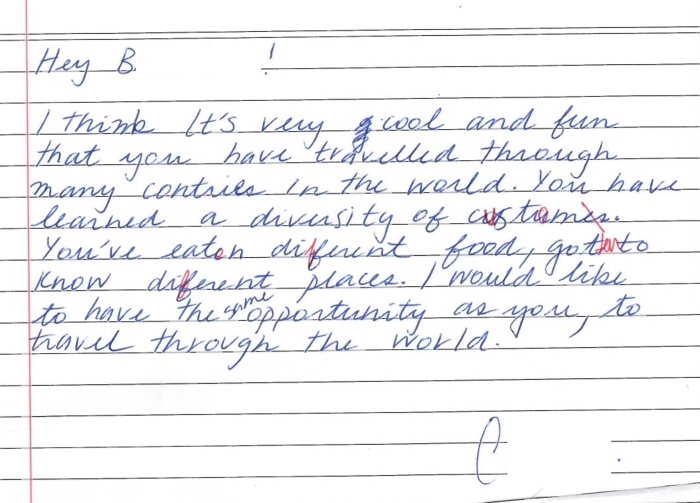 Hey B !
I think It's very cool and fun
that you have travelled through
many contries In the world. You have
learned a diversity of customes.
You've eaten different food, got to
know different places. I would like
to have the same opportunity as you, to
travel through the world.
C